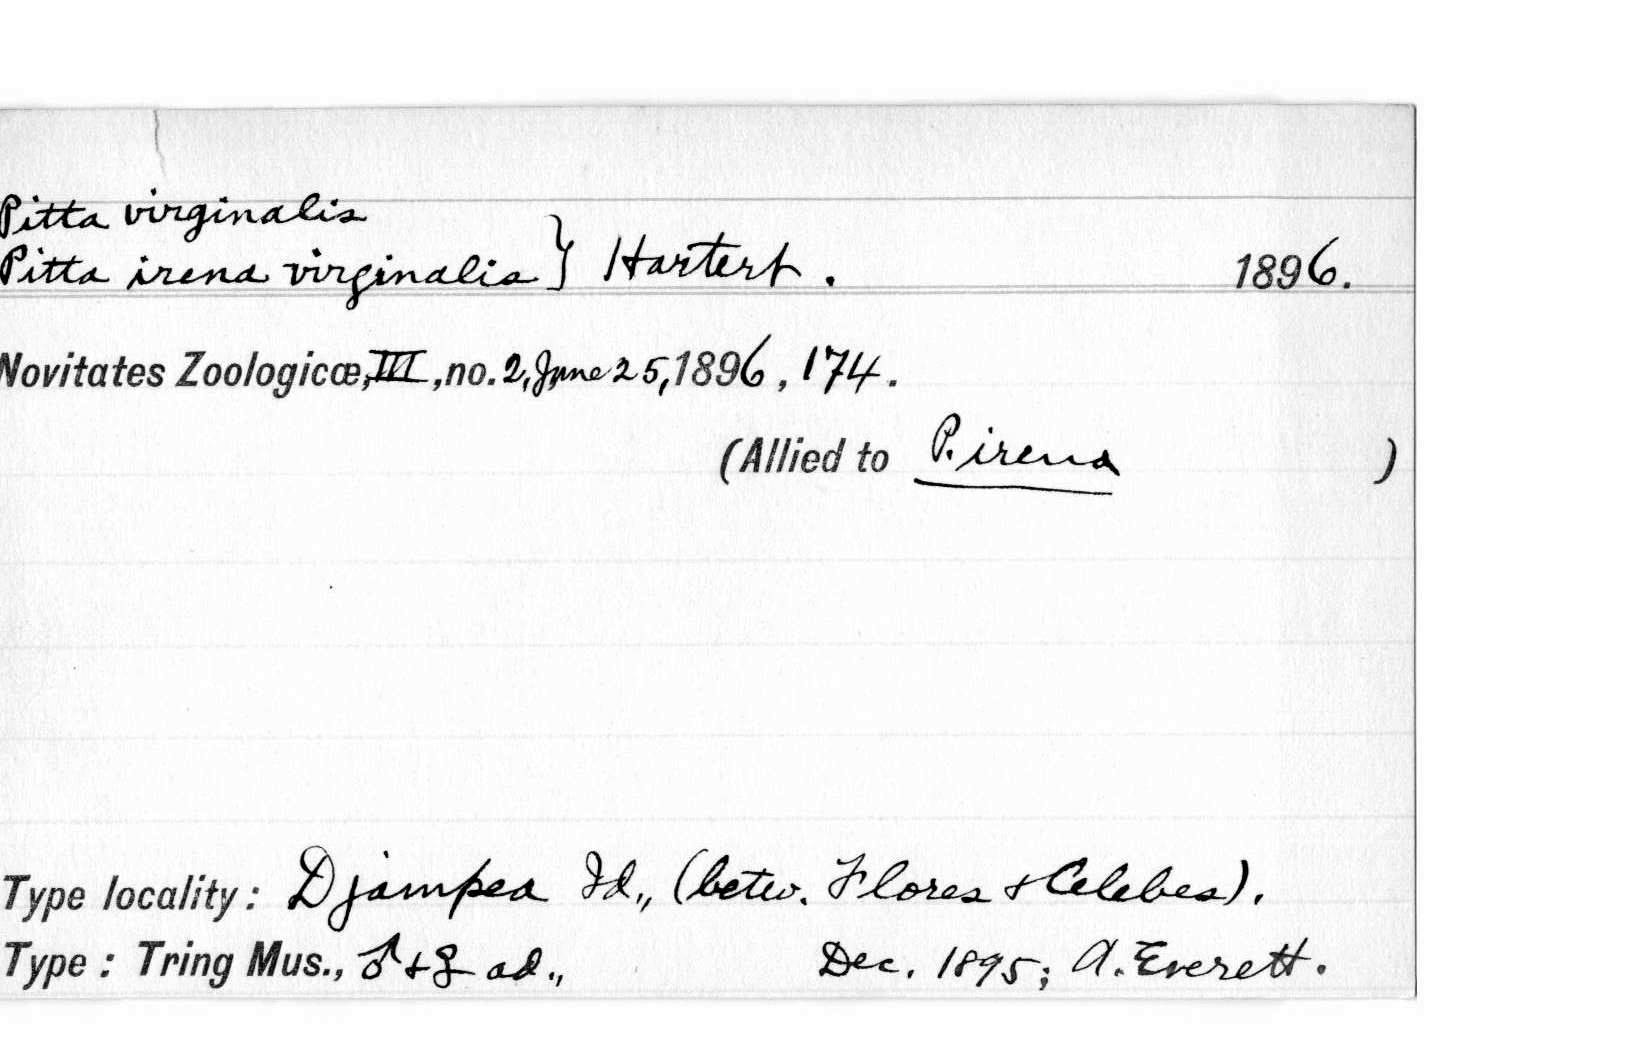 Pitta virginalis
Pitta irena virginalis } Hartert. 1896.
Novitates Zoologicæ, III, no. 2, June 25, 1896, 174.
(Allied to P. irena )
Type locality: Djampea Id., (betw. Flores & Celebes).
Type: Tring Mus., ♂ + ♀ ad., Dec. 1895; A. Everett.